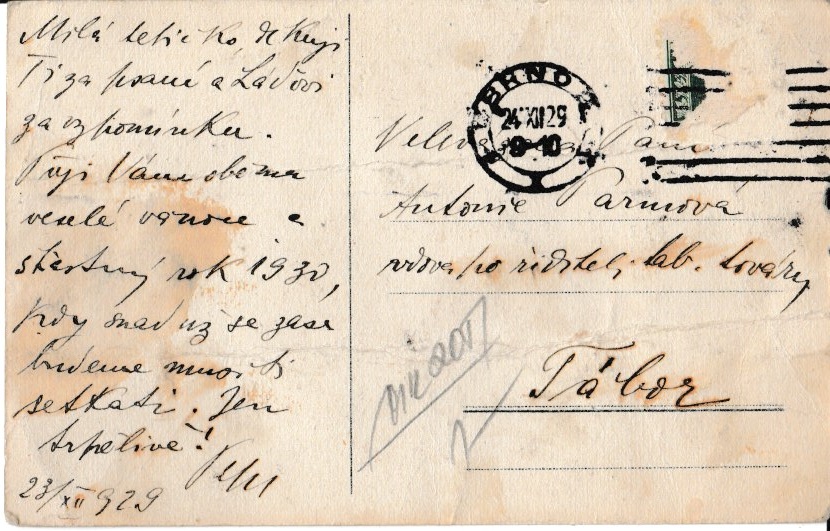 Milá tetičko, děkuji
Ti za psaní a Laďovi
za vzpomínku.
Přeji Vám oběma
veselé vánoce a
šťastný rok 1930,
kdy snad už se zase
budeme muositi
setkati. Jen
trpělivě!
23/XII 929
BRNO 2
24 XII 29
9-10
Paní
Antonie Parmová
vdova po řediteli tab. továrny
Tábor